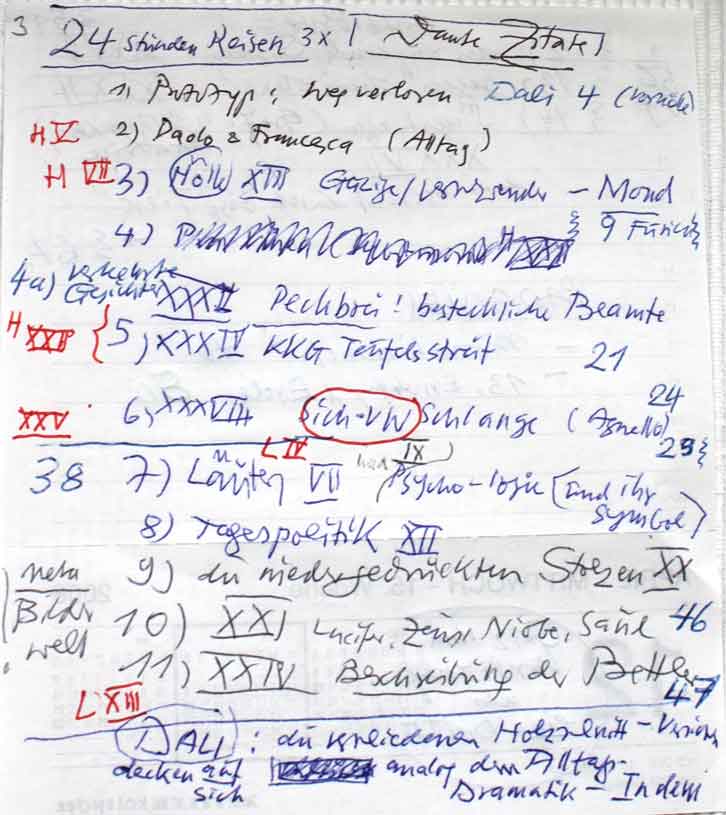 3
24 Stunden Reisen 3x | Dante Zitate
1) Prototyp: weg verloren Dali 4
H V 2) Paolo & Francesca (Alltag)
H VII 3) Hölle XIII Geizige/Verschwender - Mond
{ 9 Furien }
4) XXXI
4a) verkehrte Gesichter XXXII Pechbrei! bestechliche Beamte
H XXII { 5) XXXIV KKG Teufelsstreit - 21
XXV 6) XXXVIII Sich-VW Schlange (Agnello) 24
29 }
L IV IX
38 7) Läuten VII Psycho-logik (und ihr Symbol)
8) Tagespolitik XII
9) die niedergedrückten Stolzen XX
meta Bilder welt
10) XXI Lucifer, Zeus, Niobe, Saul 46
11) XXIV Beschreibung der Bettler
47
L XIII
DALI: die verschiedenen Holzschnitt-Version
decken auf analog dem Alltag-
sich Dramatik - In dem